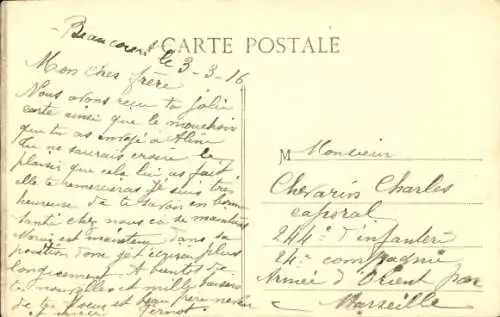 Beaucourt le 3-3-16
CARTE POSTALE
Mon cher frère
Nous avons reçu ta jolie
carte ainsi que le mouchoir
que tu as envoyé à Aline
Tu ne saurais croire le
plaisir que cela lui as fait
elle te remerciras Je suis très
heureuse de te savoir en bonne
santé chez nous ca se maintient
est maintenu dans sa
position donc je t'écrirai plus
longuement A bientôt de
tes nouvelles et mille baisers
de ta soeur et beau frère
et nièce
M Monsieur
Chevarin Charles
caporal
244e d'infanterie
24e compagnie
Armée d'Orient par
Marseille